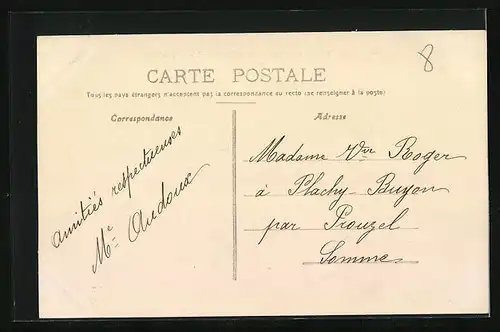 8
CARTE POSTALE
Tous les pays étrangers n'acceptent pas la correspondance au recto (se renseigner à la poste)
Correspondance
Adresse
amitiés respectueuses
Me Audoux
Madame Vve Roger
à Plachy-Buyon
par Prouzel
Somme